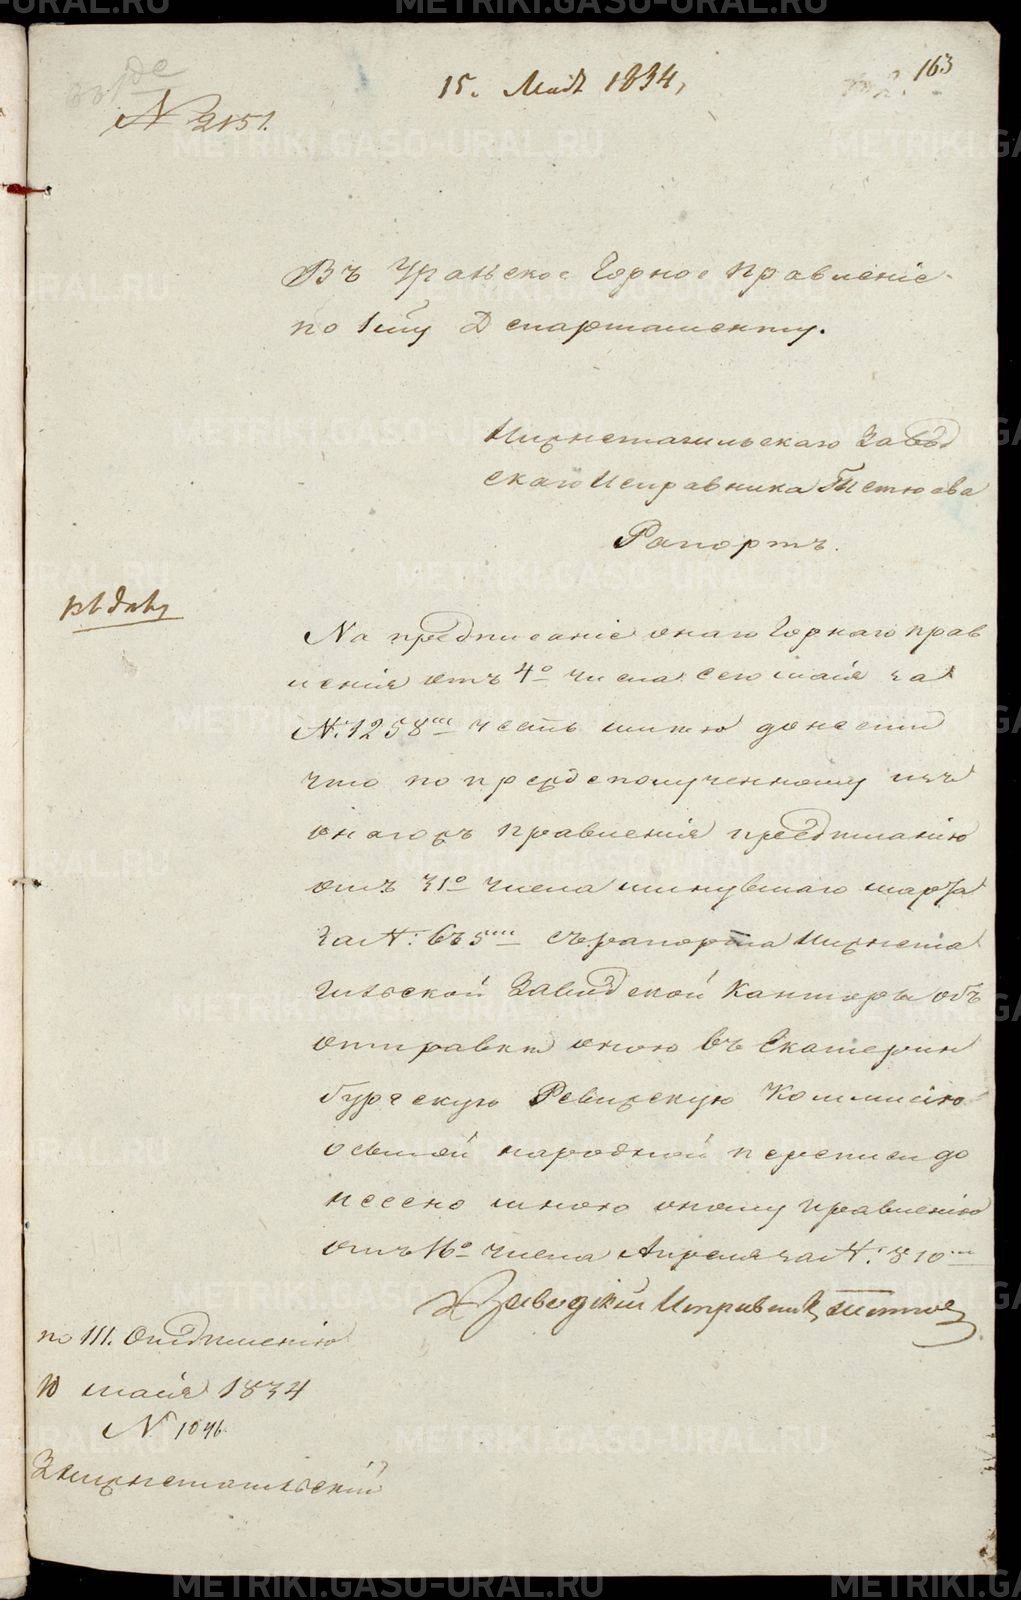 163
15. Мая 1834,
№ 2151.
Въ Уральское Горное Правленіе
по 1му Департаменту.
Нижнетагильскаго Завод
скаго Исправника Тетюева
Рапортъ.
На предписаніе онаго Горнаго прав
ленія отъ 4го числа сего маія за
№ 1258м честь имѣю донести
что по предсполученному изъ
онаго правленія предписанію
отъ 31го числа минувшаго марта
за № 655м съ рапорта Нижнета
гильской Заводской Канторы объ
отправки оною въ Екатерин
бургскую Ревижскую Коммисію
осьмой народной переписи до
несено мною оному правленію
отъ 16го числа Апреля за № 810м
Заводскій Исправникъ Тетюев
по III. Отдѣленію
10 маія 1834
№ 1046
Въ Нижнетагильскій
METRIKI.GASO-URAL.RU